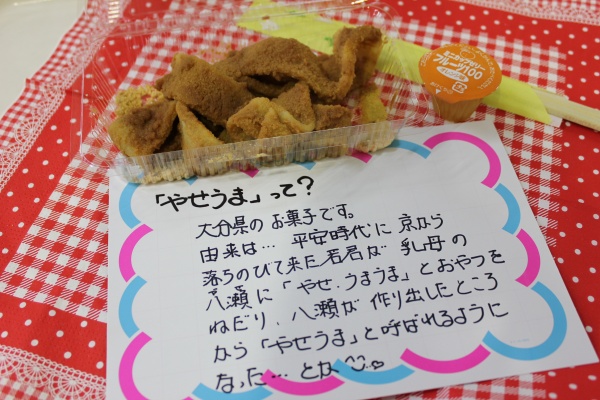 ミニカップゼリー
フルーツ100
「やせうま」って？
大分県のお菓子です。
由来は… 平安時代に京から
落ちのびて来た若君が乳母の
八瀬に「やせ、うまうま」とおやつを
ねだり、八瀬が作り出したところ
から「やせうま」と呼ばれるように
なった… とか